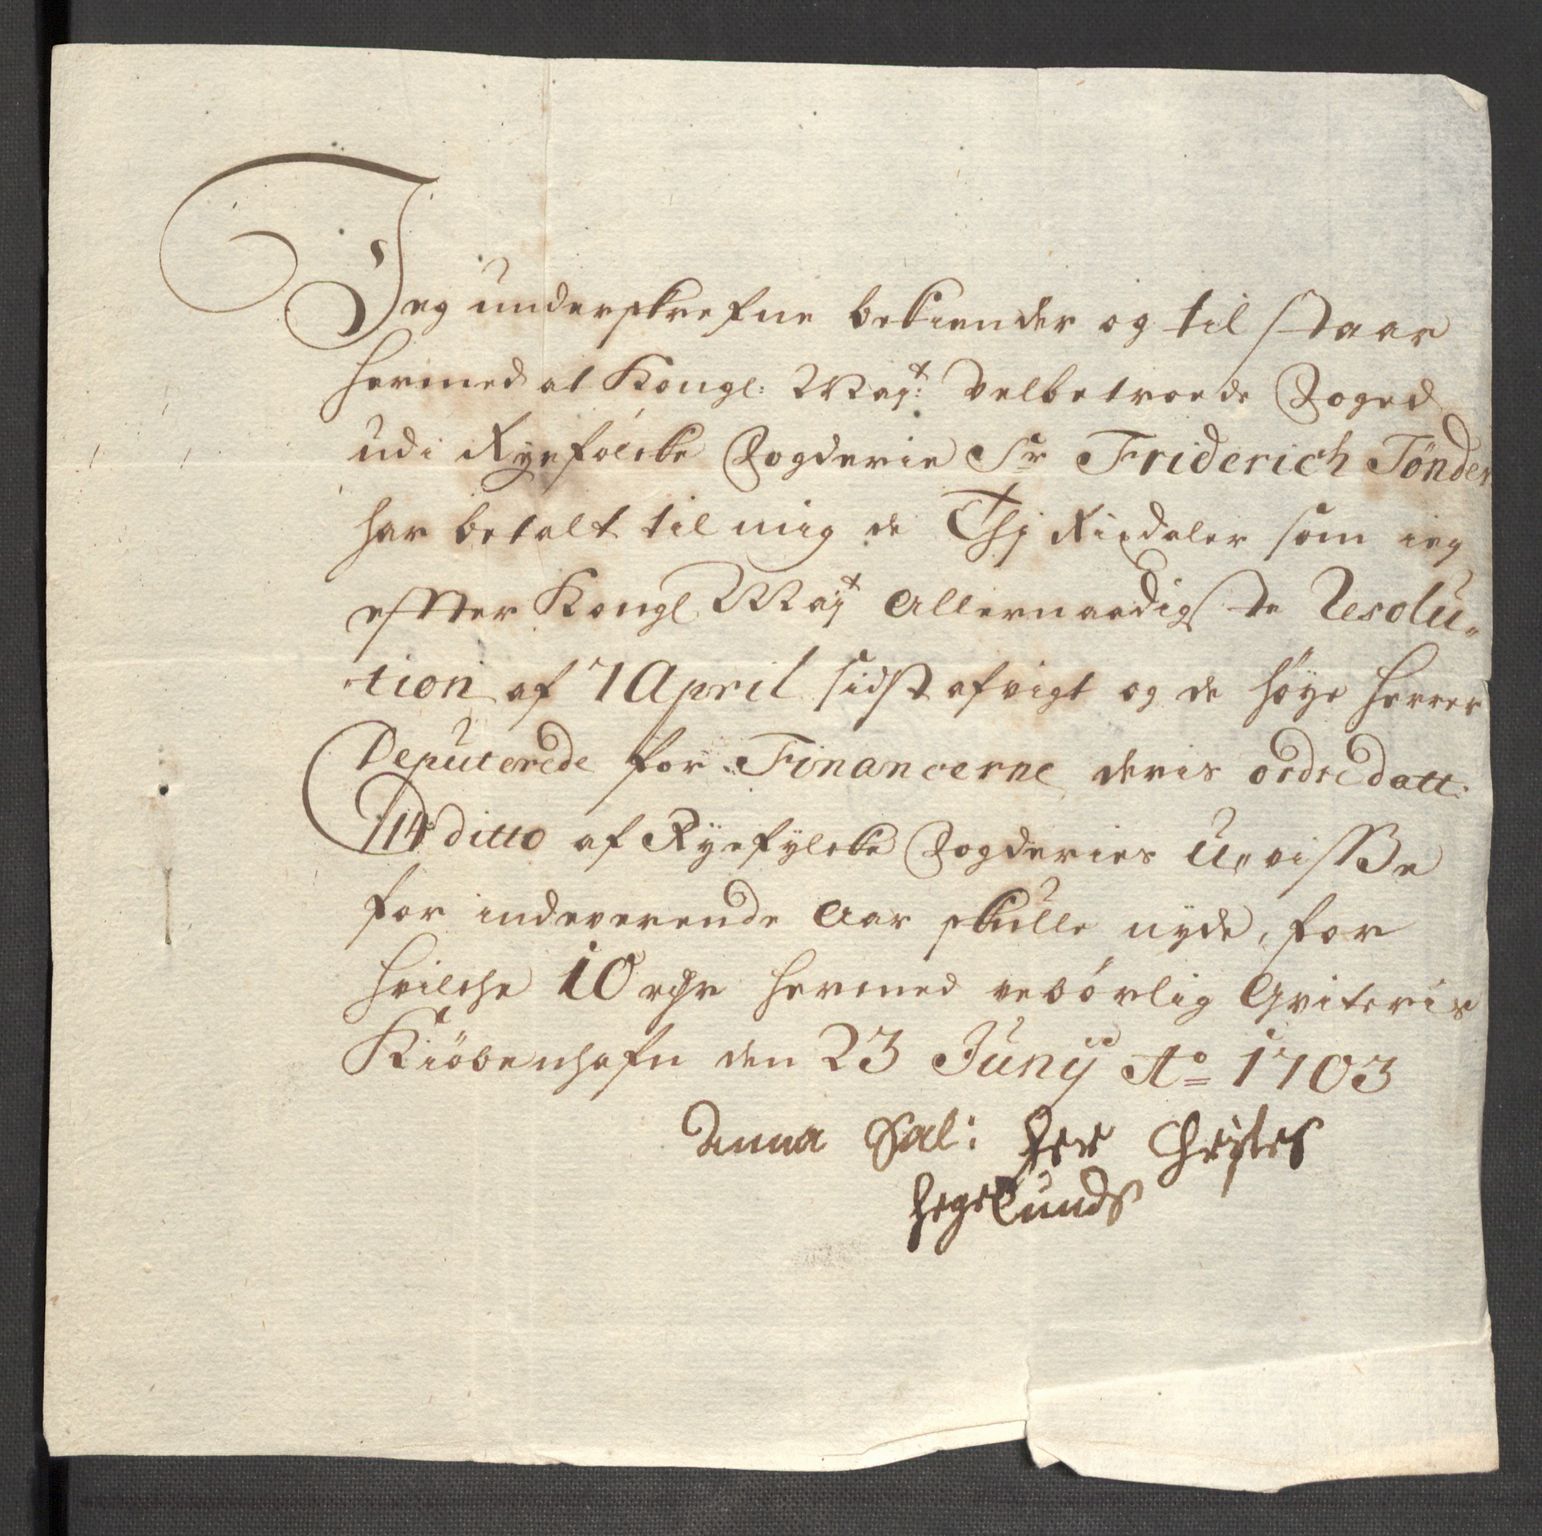 Jeg underskrefne bekiender og til staar
hermed at Kongl: Mayt: Velbetroede Foged
udi Ryefölcke Fogderie Sr Friderich Tönder
har betalt til mig de Thj Rixdaler som ieg
effter Kongl Mayt Allernaadigste Resolu-
tion af 7 April sidst afvigt og de høye Herrer
Deputerede for Financerne deris ordre datt:
14 ditto af Ryefylcke Fogderies U-visse
for indeverende Aar skulle nyde, for
hvilche 10 rdr hermed tilbörlig Qviteris
Kiöbenhafn den 23 Junij Ao 1703
Anna Sal: Her Christes
Hegelunds